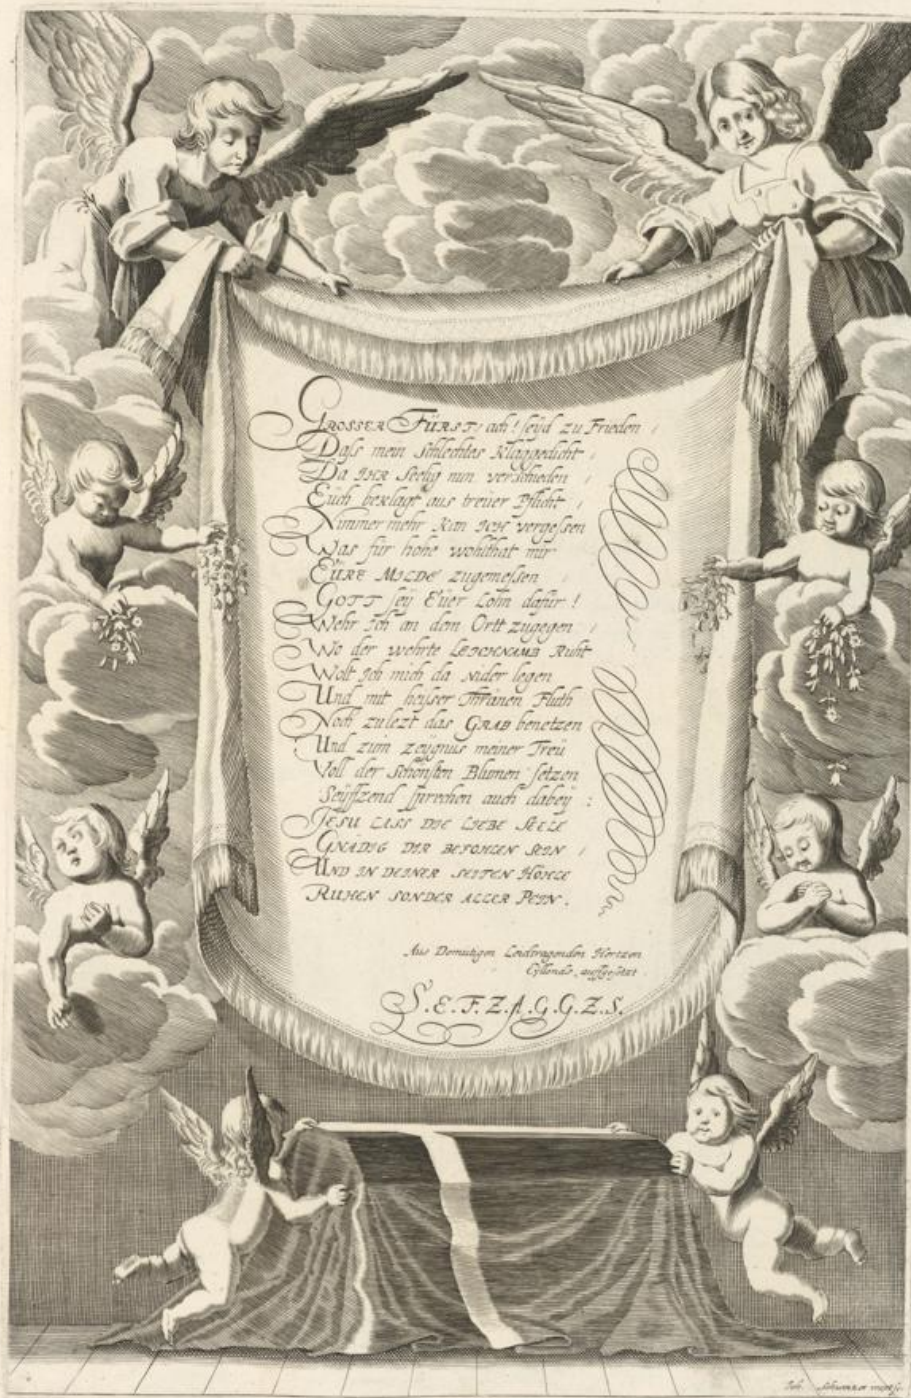 GROSSER FÜRST, ach! seyd zu Frieden /
Daſs mein Schlechtes Klaggedicht /
Da IHR Seelig nun verschieden /
Euch beklagt aus treüer Pflicht /
Nimmer mehr Kan ICH vergeſsen
Was für hohe wohlthat mir
EÜRE MILDE zugemeſsen
GOTT seÿ Eüer Lohn dafür !
Wehr Ich an dem Ortt zugegen /
Wo der wehrte LEICHNAMB Ruht
Wolt Ich mich da nider legen
Und mit heyſser Thränen Fluth
Noch zulezt das GRAB benetzen
Und zum zeÿgnus meiner Treü
Voll der Schönſten Blumen ſetzen
Seüffzend ſprechen auch dabeÿ :
JESU LASS DIE LIEBE SEELE
GNÄDIG DIR BEFOHLEN SEIN /
UND IN DEINER SEITEN HÖHLE
RUHEN SONDER ALLER PEIN .
Aus Demutigen Leidtragenden Hertzen
Eÿllends auffgeſetzt
S.E.F.Z.A.G.G.Z.S.
Joh.